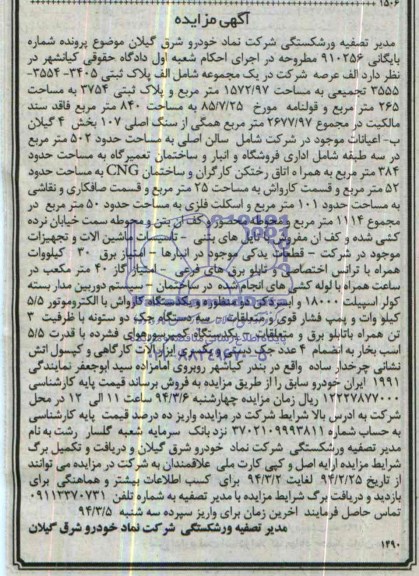 ۱۵۰۶
آگهی مزایده
مدیر تصفیه ورشکستگی شرکت نماد خودرو شرق گیلان موضوع پرونده شماره
بایگانی ۹۱۰۲۵۶ مطروحه در اجرای احکام شعبه اول دادگاه حقوقی کیانشهر در
نظر دارد الف عرصه شرکت در یک مجموعه شامل الف پلاک ثبتی ۳۴۰۵- ۳۵۵۴-
۳۵۵۵ تجمیعی به مساحت ۱۵۷۲/۹۷ متر مربع و پلاک ثبتی ۳۷۵۴ به مساحت
۲۶۵ متر مربع و قولنامه مورخ ۸۵/۷/۲۵ به مساحت ۸۴۰ متر مربع فاقد سند
مالکیت در مجموع ۲۶۷۷/۹۷ متر مربع همگی از سنگ اصلی ۱۰۷ بخش ۴ گیلان
ب- اعیانات موجود در شرکت شامل سالن اصلی به مساحت حدود ۵۰۲ متر مربع
در سه طبقه شامل اداری فروشگاه و انبار و ساختمان تعمیرگاه به مساحت حدود
۳۸۴ متر مربع به همراه اتاق رختکن کارگران و ساختمان CNG به مساحت حدود
۵۲ متر مربع و قسمت کارواش به مساحت ۲۵ متر مربع و قسمت صافکاری و نقاشی
به مساحت حدود ۱۰۱ متر مربع و اسکلت فلزی به مساحت حدود ۵۰ متر مربع در
مجموع ۱۱۱۴ متر مربع و محوطه محصور و کف آن بتن و محوطه سمت خیابان نرده
کشی شده و کف آن مفروش با تایل های بتنی - تاسیسات ماشین آلات و تجهیزات
موجود در شرکت - قطعات یدکی موجود در انبارها - امتیاز برق کیلووات
همراه با ترانس اختصاصی و تابلو برق های فرعی - امتیاز گاز ۴۰ متر مکعب در
ساعت همراه با لوله کشی های انجام شده در ساختمان - سیستم دوربین مدار بسته
کولر اسپیلت ۱۸۰۰۰ و آبسردکن دو منظوره و یکدستگاه کارواش با الکتروموتور ۵/۵
کیلو وات و پمپ فشار قوی و متعلقات - سه دستگاه جک دو ستونه با ظرفیت ۳
تن همراه باتابلو برق و متعلقات - یکدستگاه کمپرسور هوای فشرده با قدرت ۵/۵
اسب بخار به انضمام ۴ عدد جک دستی و یکسری ابزارآلات کارگاهی و کپسول آتش
نشانی چرخدار ساده واقع در بندر کیاشهر روبروی امامزاده سید ابوجعفر نمایندگی
۱۹۹۱ ایران خودرو سابق را از طریق مزایده به فروش برساند قیمت پایه کارشناسی
۱۲۲۲۷۸۷۷۰۰۰ ریال زمان مزایده چهارشنبه ۹۴/۳/۶ ساعت ۱۱ الی ۱۲ در محل
شرکت به ادرس بالا شرایط شرکت در مزایده واریز ده درصد قیمت پایه کارشناسی
به حساب شماره ۳۷۰۲۱۰۹۹۹۳۸۱۱ نزد بانک سرمایه شعبه گلسار رشت به نام
مدیر تصفیه ورشکستگی شرکت نماد خودرو شرق گیلان و دریافت و تکمیل برگ
شرایط مزایده ارایه اصل و کپی کارت ملی علاقمندان به شرکت در مزایده می توانند
از تاریخ ۹۴/۲/۲۵ لغایت ۹۴/۳/۲ برای کسب اطلاعات بیشتر و هماهنگی برای
بازدید و دریافت برگ شرایط مزایده با مدیر تصفیه به شماره تلفن ۰۹۱۱۲۳۷۰۷۳۱
تماس حاصل فرمایند آخرین زمان برای واریز سپرده سه شنبه ۹۴/۳/۵
مدیر تصفیه ورشکستگی شرکت نماد خودرو شرق گیلان
۱۲۹۰